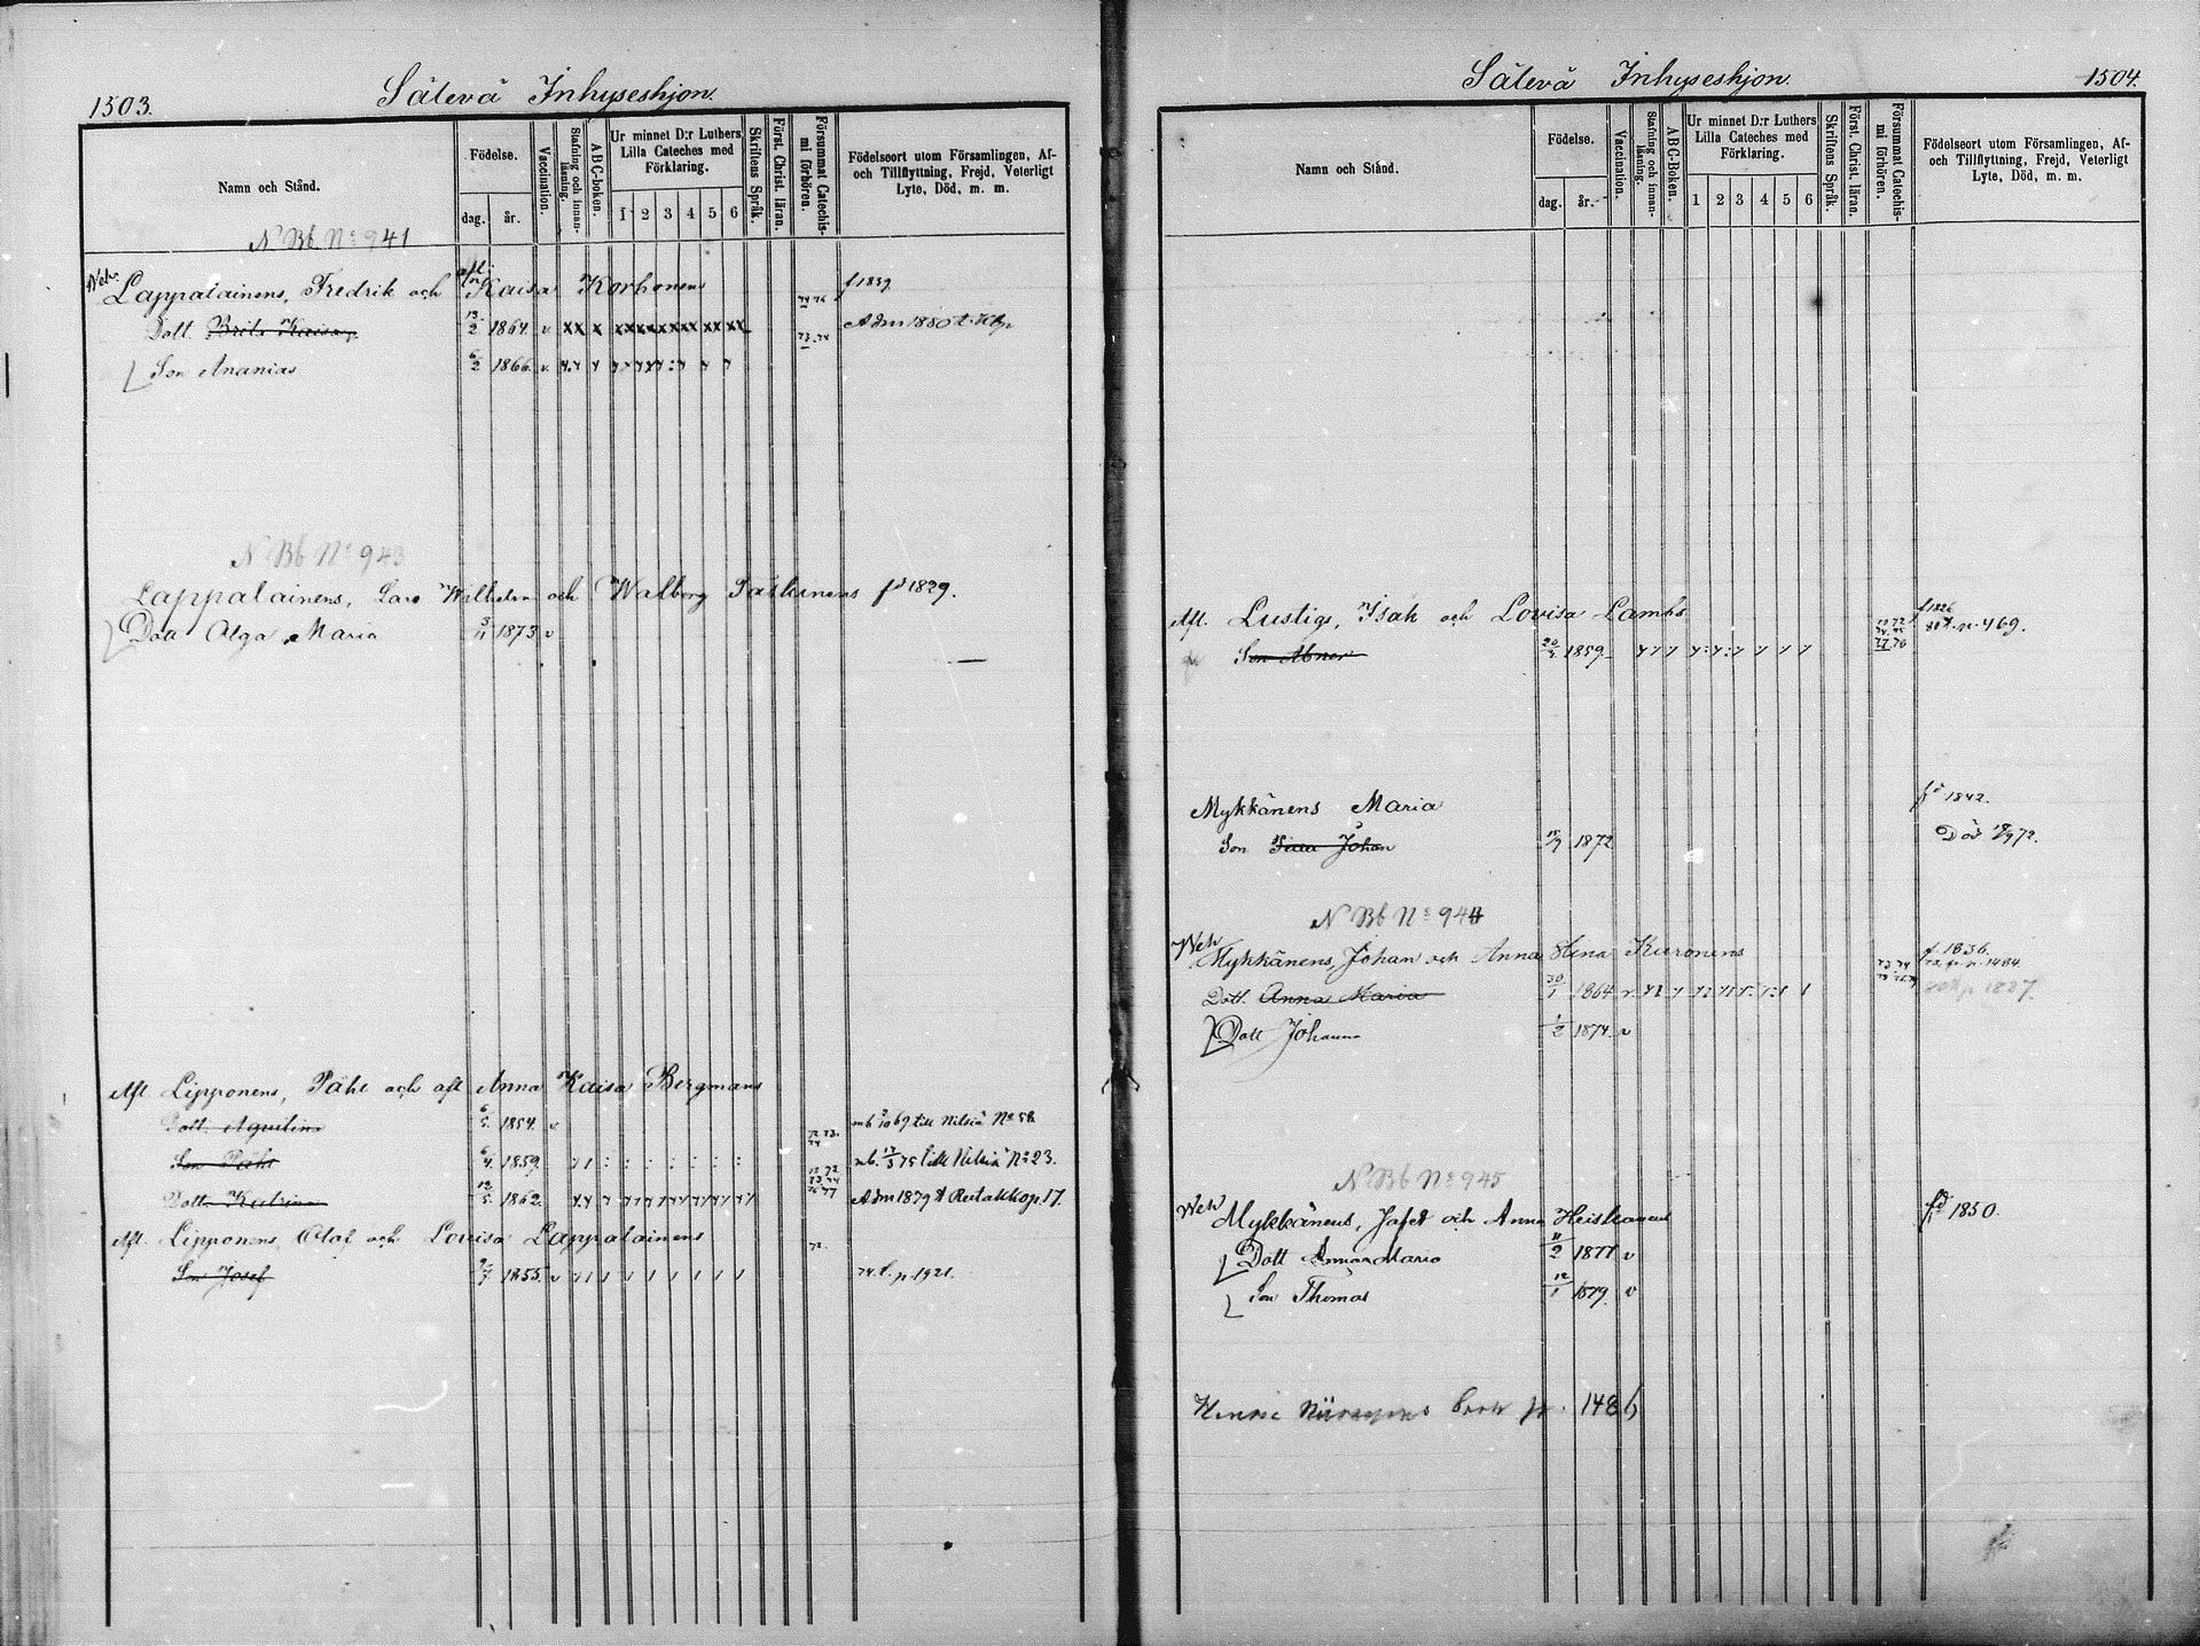 1503.
Sälevä Inhyseshjon.
Namn och Stånd.
Födelse.
dag. år.
Vaccination.
Stafning och innan-läsning.
ABC-boken.
Ur minnet D:r Luthers Lilla Cateches med Förklaring.
1 2 3 4 5 6
Skriftens Språk.
Först. Christ. läran.
Försummat Catechis-mi förhören.
Födelseort utom Församlingen, Af- och Tillflyttning, Frejd, Veterligt Lyte, Död, m. m.
N Bb No 941
Lappalainens, Fredrik och Kaisa Korhonens f 1839
Dott. Brita Kaisa 13/2 1864. v Adm 1880
Son Ananias 6/2 1866. v
N Bb No 943
Lappalainens, Lars Wilhelm och Walborg Päskinens fd 1829.
Dott Alga Maria 3/11 1873 v
Aft Lipponens, Påhl och aft Anna Kaisa Bergmans
Dott. Aquilina 6/5 1854. v mb 69 till Nilsiä No 58
Son Påhl 6/4 1859 mb. 75 till Nilsiä No 23.
Dott. Katrina 12/5 1862 Adm 1879
Aft. Lipponens Olof och Lovisa Lappalainens
Son Josef 1855. v 74 t. p. 1921.
Sälevä Inhyseshjon.
1504.
Namn och Stånd.
Födelse.
dag. år.
Vaccination.
Stafning och innan-läsning.
ABC-Boken.
Ur minnet D:r Luthers Lilla Cateches med Förklaring.
1 2 3 4 5 6
Skriftens Språk.
Först. Christ. läran.
Försummat Catechis-mi förhören.
Födelseort utom Församlingen, Af- och Tillflyttning, Frejd, Veterligt Lyte, Död, m. m.
Aft. Lustigs, Isak och Lovisa Lambs f 1826
Son Abner 1859. 80 t. p. 469.
Mykkänens Maria fd 1842.
Son Johan 1872 Död 72.
N Bb No 944
Mykkänens, Johan och Anna Stina Kuronens f. 1836.
Dott. Anna Maria 30/1 1864 v
Dott Johanna 1/2 1874. v
N Bb No 945
Mykkänens, Jafet och Anna Heiskanens fd 1850.
Dott Anna Maria 11/2 1877 v
Son Thomas 12/1 1879. v